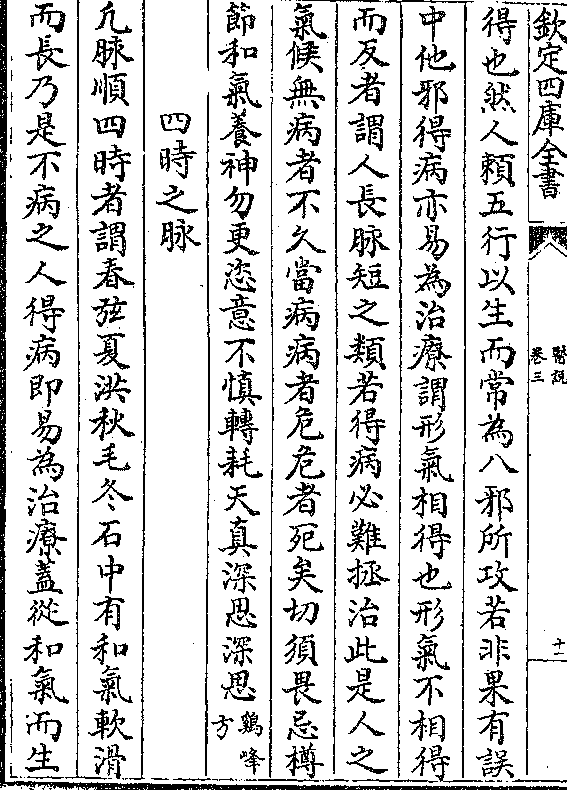 欽定四庫全書
醫說
卷三
十一
得也然人賴五行以生而常為八邪所攻若非果有誤
中他邪得病亦易為治療謂形氣相得也形氣不相得
而反者謂人長脉短之類若得病必難拯治此是人之
氣候無病者不久當病病者危危者死矣切須畏忌樽
節和氣養神勿更恣意不慎轉耗天真深思深思鷄峰方
四時之脉
凢脉順四時者謂春弦夏洪秋毛冬石中有和氣軟滑
而長乃是不病之人得病即易為治療蓋從和氣而生